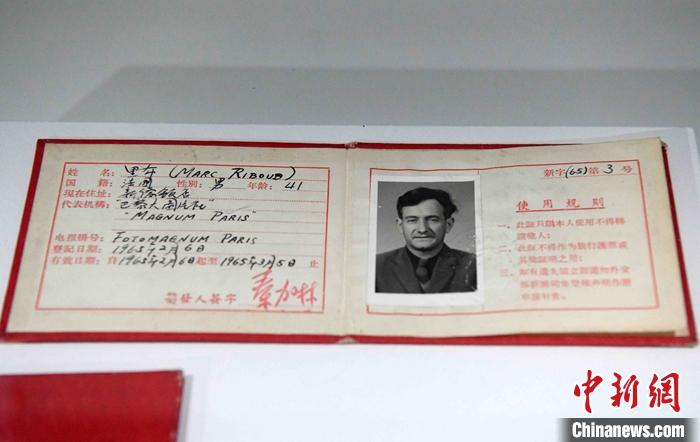 姓 名: 里布 (MARC RIBOUD)
国 籍: 法国 性别: 男 年龄: 41
现在住址: 新侨饭店
代表机构: "巴黎人图片社"
"MAGNUM PARIS"
电报挂号: FOTOMAGNUM PARIS
登记日期: 1965年2月6日
有效日期: 自1965年2月6日起至1965年3月5日 止
发人簽字 秦加林
新字(65)第 3 号
使用規則
一. 此証只限本人使用不得轉
二. 此証不得作为旅行護照或
其他証明之用;
三. 如有遺失須立即通知外交
中新网
Chinanews.com